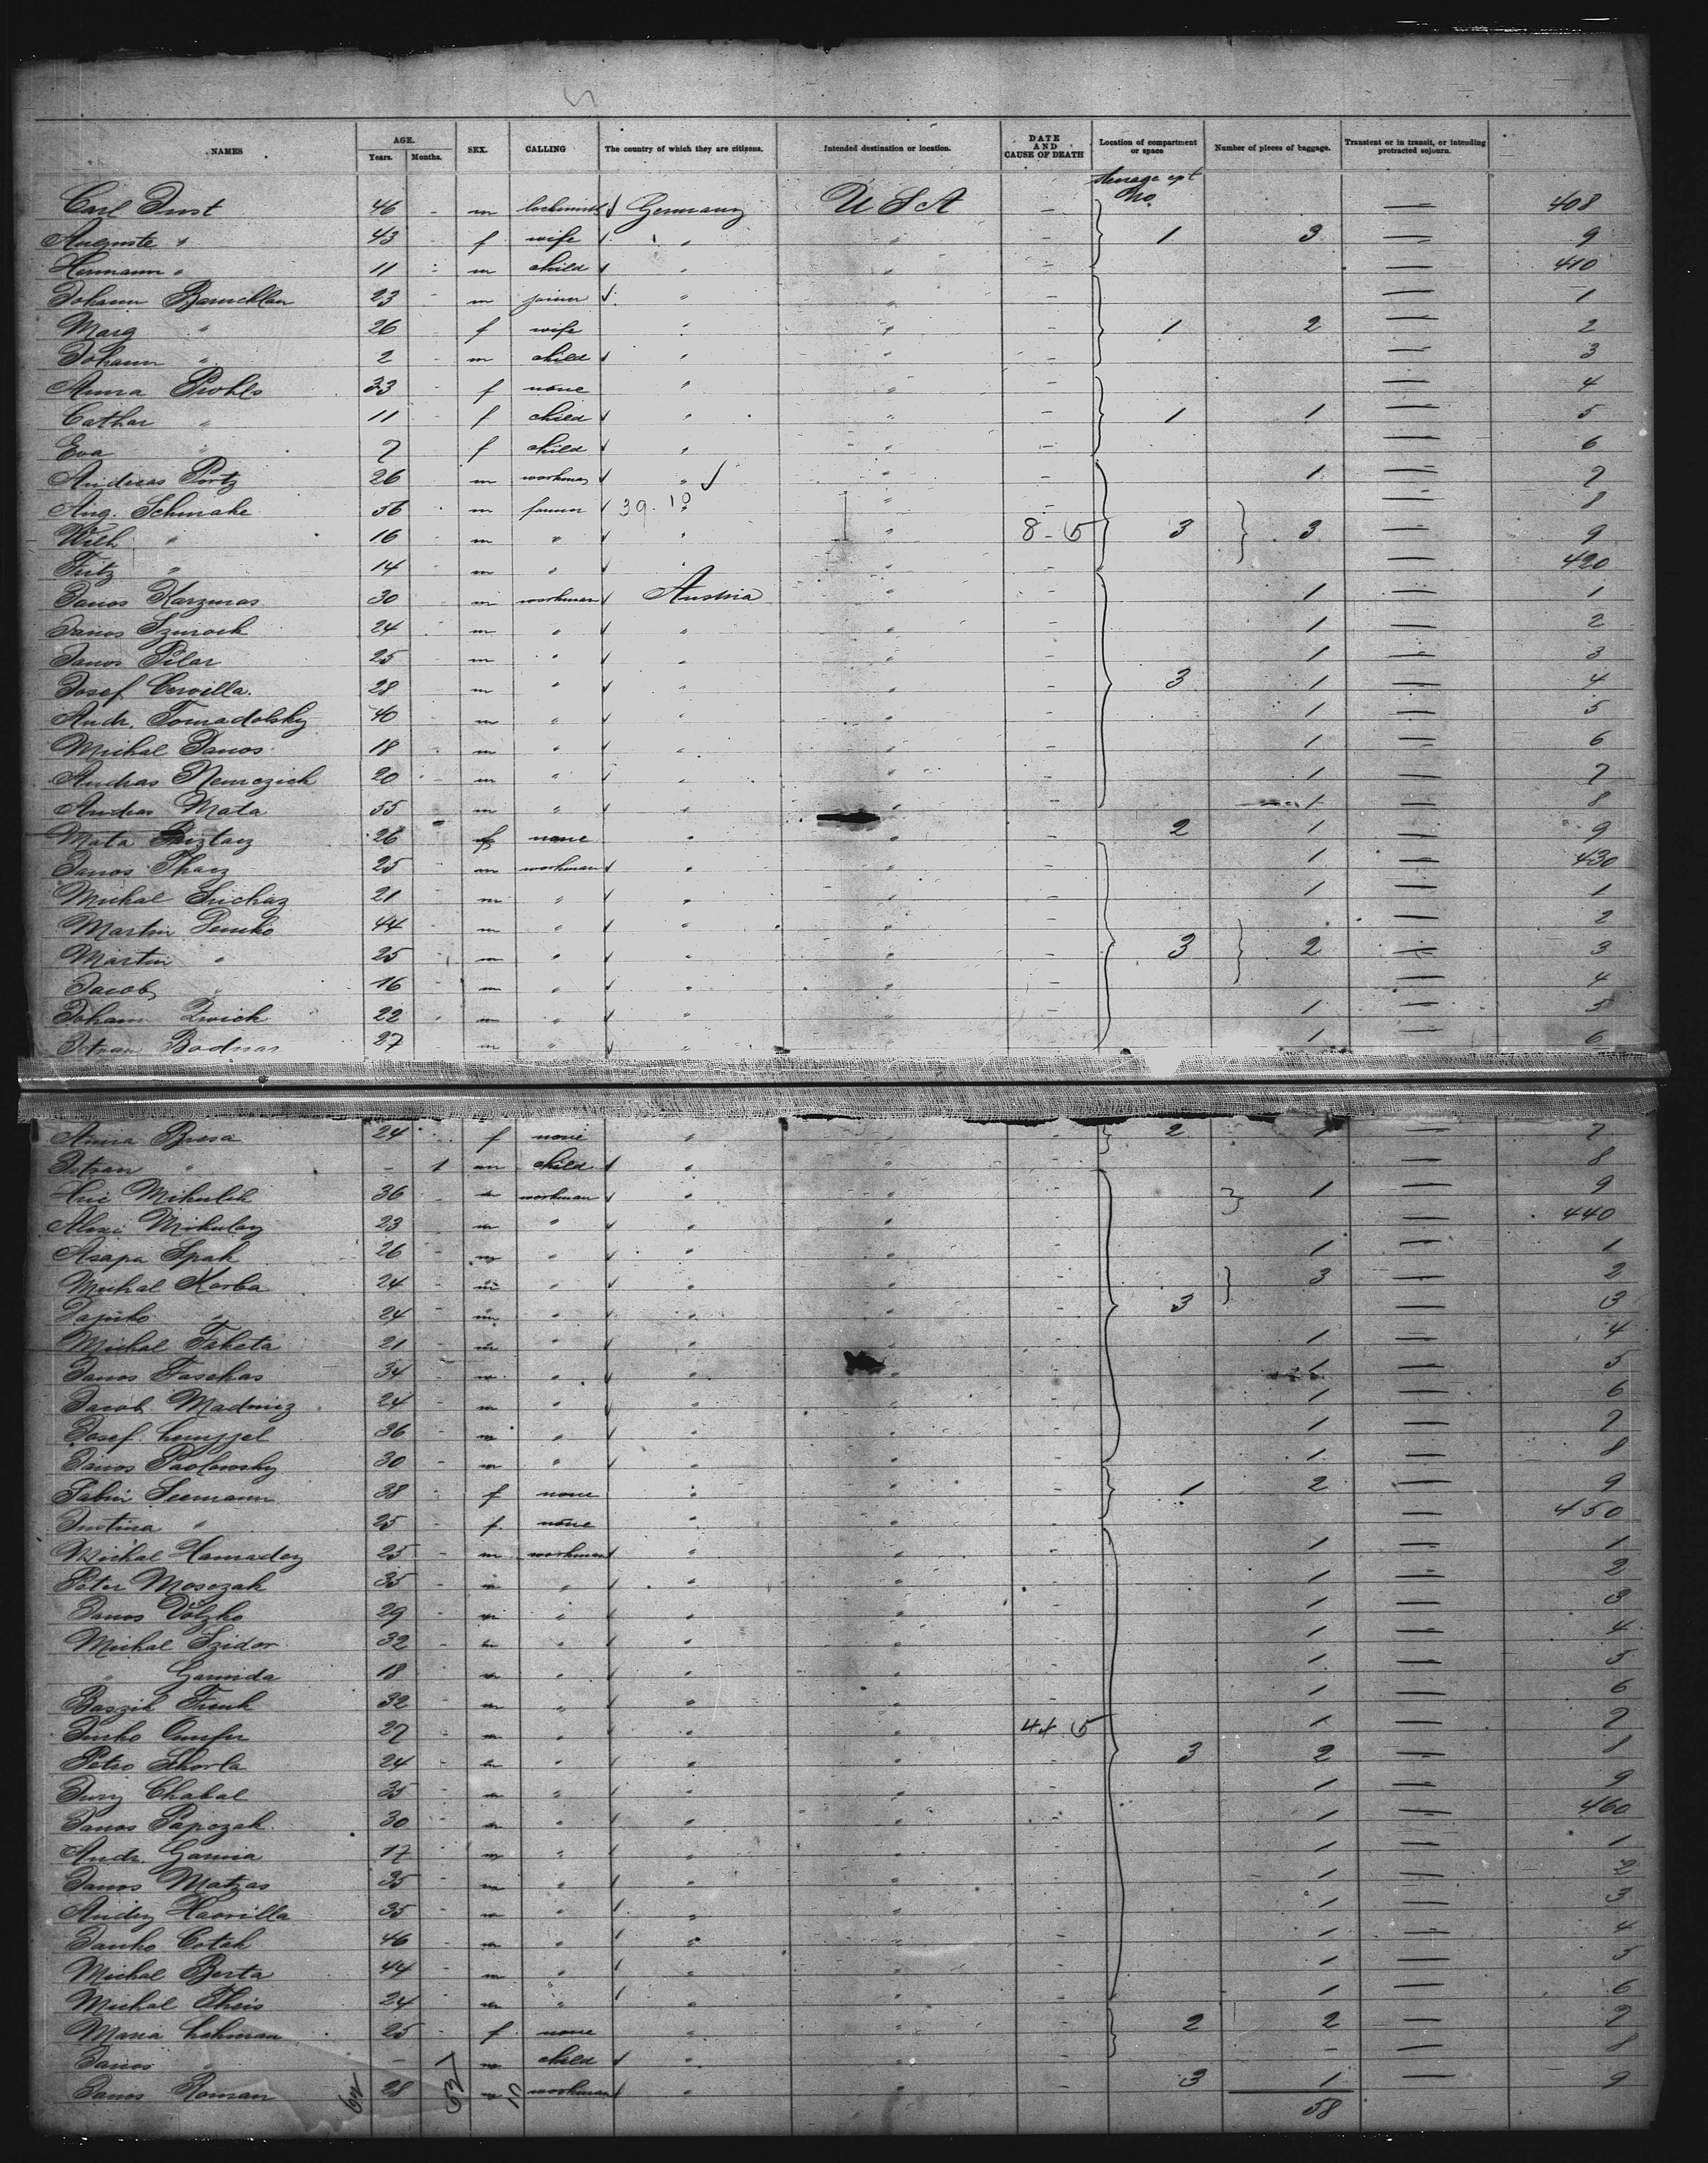 NAMES AGE. Years. Months. SEX. CALLING The country of which they are citizens. Intended destination or location. DATE AND CAUSE OF DEATH Location of compartment or space Number of pieces of baggage. Transient or in transit, or intending protracted sojourn.
Steerage cpt No.
Carl Just 46 - m locksmith ✓ Germany U S A - — 408
Auguste " 43 - f wife ✓ " " - 1 3 — 9
Hermann " 11 - m child ✓ " " - — 410
Johann 23 - m joiner ✓ " " - — 1
Marg " 26 - f wife " " - 1 2 — 2
Johann " 2 - m child ✓ " " - — 3
Anna Prohls 33 - f none " " - — 4
Cathar " 11 - f child ✓ " " - 1 1 — 5
Eva " 7 - f child ✓ " " - — 6
Andreas Portz 26 - m workman " ✓ " - 1 — 7
Aug. Schnake 56 - m farmer ✓ 39.10 " - — 8
Wilh " 16 - m " ✓ " " 8-5 3 3 — 9
Fritz " 14 - m " ✓ " " - — 420
Janos Karzmas 30 - m workman ✓ Austria " - 1 — 1
Janos Szuroch 24 - m " ✓ " " - 1 — 2
Janos Pilar 25 - m " ✓ " " - 1 — 3
Josef Cervilla. 28 - m " ✓ " " - 3 1 — 4
Andr. Tomadolsky 40 - m " ✓ " " - 1 — 5
Michal Janos 18 - m " ✓ " " - 1 — 6
Andras Nemczich 20 - m " ✓ " " - 1 — 7
Andras Mata 55 - m " ✓ " " - 1 — 8
Mata 26 - f none " " - 2 1 — 9
Janos Tharz 25 - m workman ✓ " " - 1 — 430
Michal 21 - m " ✓ " " - 1 — 1
Martin Demko 44 - m " ✓ " " - — 2
Martin " 25 - m " ✓ " " - 3 2 — 3
Jacob " 16 - m " ✓ " " - — 4
Johann Zwick 22 - m " ✓ " " - 1 — 5
Istvan Bodnar 27 - m " ✓ " " 1 — 6
Anna Bresa 24 - f none " " - 2 1 — 7
Istvan " - 1 m child ✓ " " - — 8
Mikulik 36 - m workman ✓ " " - 1 — 9
Alexi Mikulay 23 - m " ✓ " " - — 440
Asapa Spak 26 - m " ✓ " " - 1 — 1
Michal Korba 24 - m " ✓ " " - 3 — 2
" 24 - m " ✓ " " - 3 — 3
Michal Feketa 21 - m " ✓ " " - 1 — 4
Janos Faschas 34 - m " ✓ " " - 1 — 5
Jacob Madmiz 24 - m " ✓ " " - 1 — 6
Josef 36 - m " ✓ " " - 1 — 7
Janos Paolowsky 30 - m " ✓ " " - 1 — 8
Sabin Seemann 38 - f none " " - 1 2 — 9
Justina " 25 - f none " " - — 450
Michal Hamadey 25 - m workman ✓ " " - 1 — 1
Peter Mosczak 35 - m " ✓ " " - 1 — 2
Janos Volzko 29 - m " ✓ " " - 1 — 3
Michal Szidor 32 - m " ✓ " " - 1 — 4
" Gamida 18 - m " ✓ " " - 1 — 5
Baszik Frenk 32 - m " ✓ " " - 1 — 6
Junko 27 - m " ✓ " " 44 5 1 — 7
Petro Skorla 24 - m " ✓ " " - 3 2 — 8
Jury Chabal 35 - m " ✓ " " - 1 — 9
Janos Papczak 30 - m " ✓ " " - 1 — 460
Andr. Gamia 17 - m " ✓ " " - 1 — 1
Janos Matzas 35 - m " ✓ " " - 1 — 2
Andry Havrilla 35 - m " ✓ " " - 1 — 3
Janko Cotak 46 - m " ✓ " " - 1 — 4
Michal Berta 44 - m " ✓ " " - 1 — 5
Michal Theis 24 - m " ✓ " " - 1 — 6
Maria Lehman 25 - f none " " - 2 2 — 7
Janos " - m child ✓ " " - - — 8
Janos Roman 28 m workman ✓ " " - 3 1 — 9
58